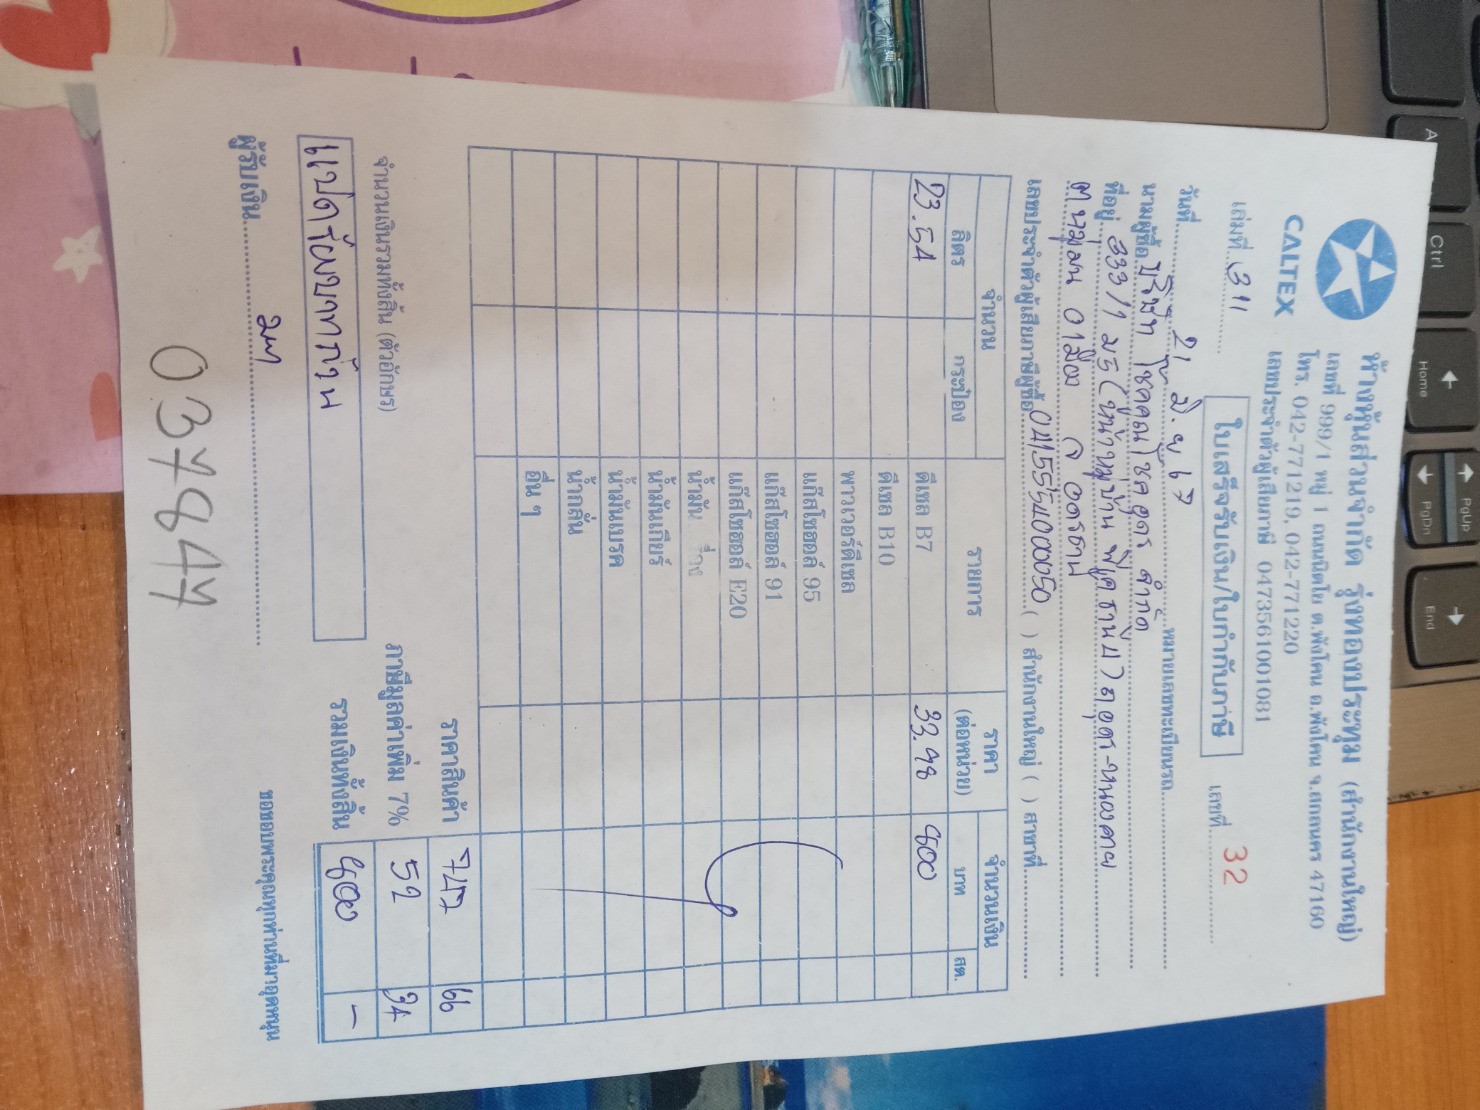 CALTEX
ห้างหุ้นส่วนจำกัด รุ่งทองประทุม (สำนักงานใหญ่)
เลขที่ 999/1 หมู่ 1 ถนนนิตโย ต.พังโคน อ.พังโคน จ.สกลนคร 47160
โทร. 042-771219, 042-771220
เลขประจำตัวผู้เสียภาษี 0473561001081
เล่มที่ 311 ใบเสร็จรับเงิน/ใบกำกับภาษี เลขที่ 32
วันที่ 21 มิ.ย 67 หมายเลขทะเบียนรถ
นามผู้ซื้อ บริษัท โชคคูณโชค อุดร จำกัด
ที่อยู่ 333/1 ม.5 (หมู่บ้าน ) ถ.อุดร-หนองคาย
ต.หมูม่น อ.เมือง จ.อุดรธานี
เลขประจำตัวผู้เสียภาษีผู้ซื้อ 0415554000050 ( ) สำนักงานใหญ่ ( ) สาขาที่
จำนวน รายการ ราคา (ต่อหน่วย) จำนวนเงิน
ลิตร กระป๋อง บาท สต.
23.54 ดีเซล B7 33.98 800
ดีเซล B10
พาวเวอร์ดีเซล
แก๊สโซฮอล์ 95
แก๊สโซฮอล์ 91
แก๊สโซฮอล์ E20
น้ำมันเครื่อง
น้ำมันเกียร์
น้ำมันเบรค
น้ำกลั่น
อื่น ๆ
จำนวนเงินรวมทั้งสิ้น (ตัวอักษร) ราคาสินค้า 747 66
ภาษีมูลค่าเพิ่ม 7% 52 34
แปดร้อยบาทถ้วน รวมเงินทั้งสิ้น 800 -
ผู้รับเงิน
ขอขอบพระคุณทุกท่านที่มาอุดหนุน
037844
Ctrl
Home
PgUp
PgDn
End